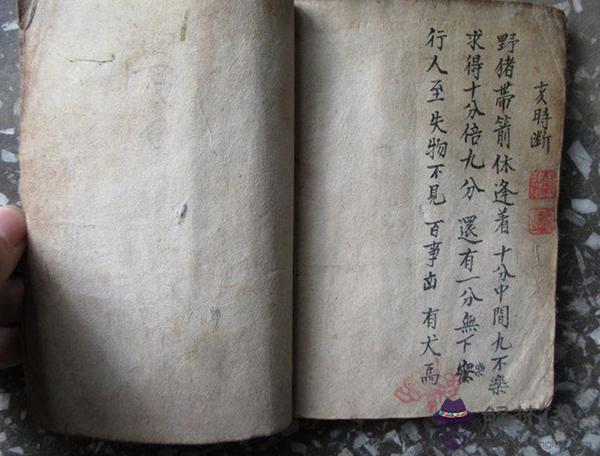 亥時斷
野猪帶箭休逢着 十分中間九不樂
求得十分倍九分 還有一分無下樂
行人至 失物不見 百事凶 有犬焉